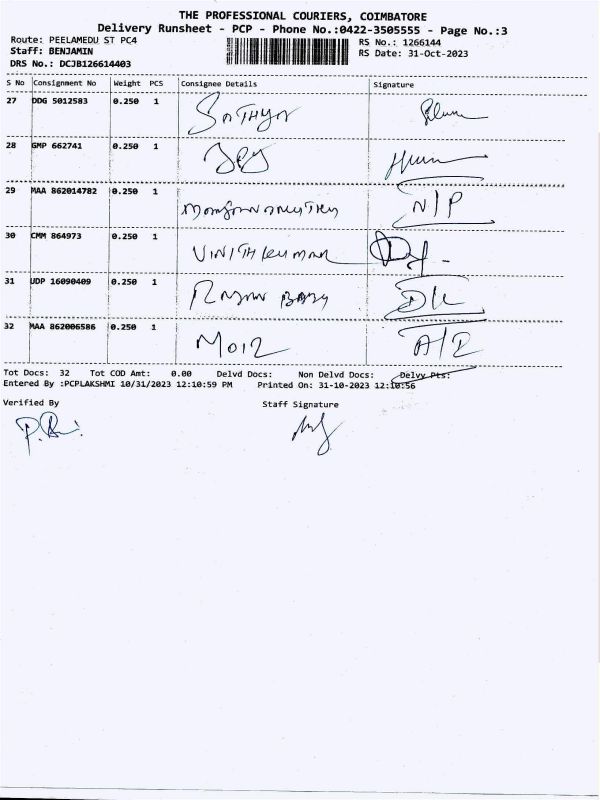 THE PROFESSIONAL COURIERS, COIMBATORE
Delivery Runsheet - PCP - Phone No.:0422-3505555 - Page No.:3
Route: PEELAMEDU ST PC4
Staff: BENJAMIN
DRS No.: DCJB126614403
RS No.: 1266144
RS Date: 31-Oct-2023
S No Consignment No Weight PCS Consignee Details Signature
27 DDG 5012583 0.250 1 SATHYA
28 GMP 662741 0.250 1
29 MAA 862014782 0.250 1 N/P
30 CMM 864973 0.250 1 VINITHKUMAR
31 UDP 16090409 0.250 1
32 MAA 862006586 0.250 1
Tot Docs: 32 Tot COD Amt: 0.00 Delvd Docs: Non Delvd Docs: Delvy Pts:
Entered By :PCPLAKSHMI 10/31/2023 12:10:59 PM Printed On: 31-10-2023 12:10:56
Verified By Staff Signature